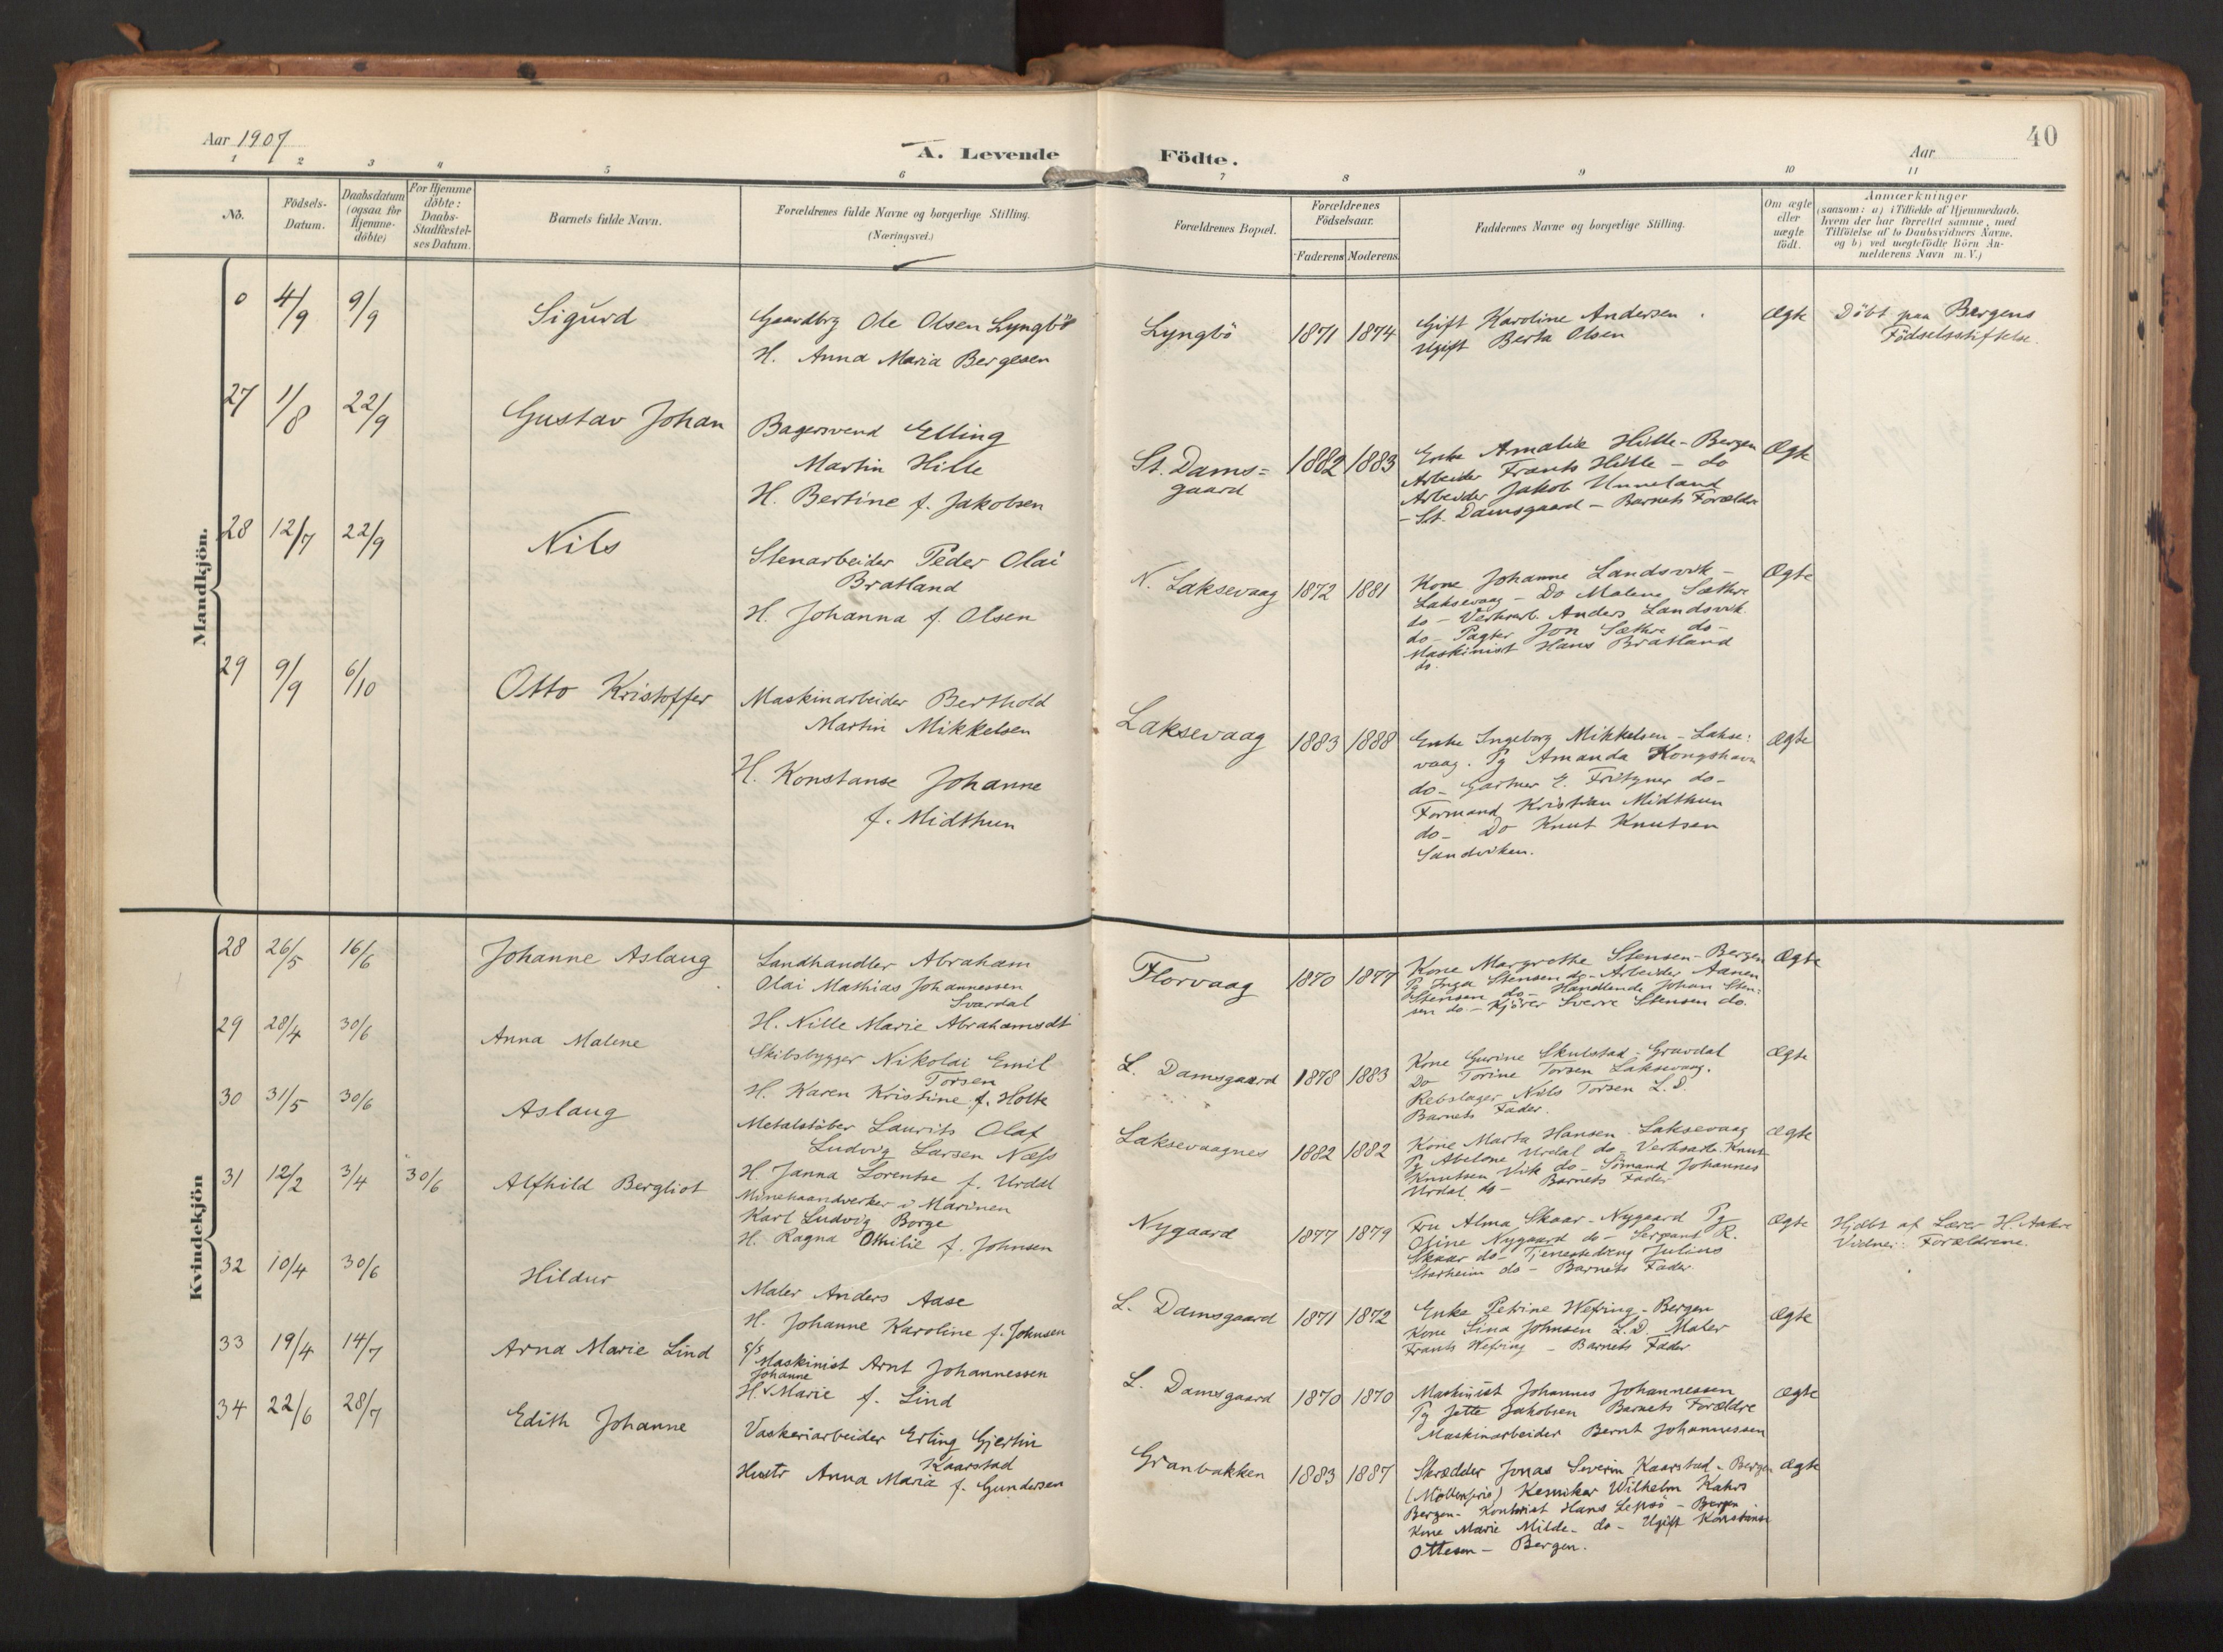 Aar 1907
A. Levende Födte.
Aar
40
1 2 3 4 5 6 7 8 9 10 11
No.
Födsels-
Datum.
Daabsdatum
(ogsaa for
Hjemme-
döbte)
For Hjemme
döbte:
Daabs-
Stadfæstel-
ses Datum.
Barnets fulde Navn.
Forældrenes fulde Navne og borgerlige Stilling.
(Næringsvei.)
Forældrenes Bopæl.
Forældrenes
Födselsaar.
Faderens Moderens
Faddernes Navne og borgerlige Stilling.
Om ægte
eller
uægte
födt.
Anmærkninger
(saasom: a) i Tilfælde af Hjemmedaab,
hvem der har forrettet samme, med
Tilföielse af to Daabsvidners Navne.
og b) ved uægtefödte Börn An-
melderens Navn m. V.)
Mandkjön.
0 4/9 9/9
Sigurd
Gaardbrg Ole Olsen Lyngbö
H. Anna Maria Bergesen
Lyngbö
1871 1874
Gift Karoline Andersen
Ugift Berta Olsen
Ægte
Döbt paa Bergens
Födselsstiftelse.
27 1/8 22/9
Gustav Johan
Bagersvend Elling
Martin Hille
H. Bertine f. Jakobsen
St. Dams=
gaard
1882 1883
Enke Amalie Hille - Bergen
Arbeider Frants Hille - do
Arbeider Jakob Unneland
- St. Damsgaard - Barnets Forældre
Ægte
28 12/7 22/9
Nils
Stenarbeider Peder Olai
Bratland
H. Johanna f. Olsen
N. Laksevaag
1872 1881
Kone Johanne Landsvik -
Laksevaag - Do Malene Sæthre
do - Verksarb. Anders Landsvik
do - Pagter Jon Sæthre do -
Maskinist Hans Bratland
do.
Ægte
29 9/9 6/10
Otto Kristoffer
Maskinarbeider Berthold
Martin Mikkelsen
H. Konstanse Johanne
f. Midthun
Laksevaag
1883 1888
Enke Ingeborg Mikkelsen - Lakse:
vaag. Pg Amanda Kongshavn
do - Gartner E. Fritzner do -
Formand Kristian Midthun
do - Do Knut Knutsen
Sandviken.
Ægte
Kvindekjön
28 26/5 16/6
Johanne Aslaug
Landhandler Abraham
Olai Mathias Johannessen
Svardal
H. Nille Marie Abrahamsdt
Florvaag
1870 1877
Kone Margrethe Stensen - Bergen
Pg Inga Stensen do - Arbeider Aanen
Stensen do - Handlende Johan Sten:
sen do. - Kjörer Sverre Stensen do.
Ægte
29 28/4 30/6
Anna Malene
Skibsbygger Nikolai Emil
Torsen
H. Karen Kristine f. Holte
L. Damsgaard
1878 1883
Kone Gurine Skulstad - Gravdal
Do Torine Torsen Laksevaag.
Rebslager Nils Torsen L. D.
Barnets Fader.
Ægte
30 31/5 30/6
Aslaug
Metalstöber Laurits Olaf
Ludvig Larsen Næss
H. Janna Lorentse f. Urdal
Laksevaagnes
1882 1882
Kone Marta Hansen Laksevaag
Pg Abelone Urdal do - Verksarb. Knut
Knutsen Vik do - Sömand Johannes
Urdal do - Barnets Fader
Ægte
31 12/2 3/4 30/6
Alfhild Bergliot
Minehaandverker i Marinen
Karl Ludvig Borge
H. Ragna Othilie f. Johnsen
Nygaard
1877 1879
Fru Alma Skaar - Nygaard Pg
Oline Nygaard do - Sergeant R.
Skaar do - Tjenestedreng Julius
Starheim do - Barnets Fader.
Ægte
Hjdbt af Lærer H. Aakre
Vidner: Forældrene.
32 10/4 30/6
Hildur
Maler Anders Aase
H. Johanne Karoline f. Johnsen
L. Damsgaard
1871 1872
Enke Petrine Wefring - Bergen
Kone Lina Johnsen L. D. Maler
Frants Wefring - Barnets Fader.
Ægte
33 19/4 14/7
Arna Marie Lind
Maskinist Arnt Johannessen
Johanne
H. Marie f. Lind
L. Damsgaard
1870 1870
Maskinist Johannes Johannessen
Pg Jette Jakobsen Barnets Forældre
Maskinarbeider Bernt Johannessen
Ægte
34 22/6 28/7
Edith Johanne
Vaskeriarbeider Erling Gjertin
Kaarstad
Hustr Anna Maria f. Gundersen
Granbakken
1883 1887
Skrædder Jonas Severin Kaarstad - Bergen
Kemiker Wilhelm Kahrs
Bergen - Kontorist Hans Lepsö - Bergen
Kone Marie Milde - do - Ugift Konstanse
Ottesen - Bergen.
Ægte